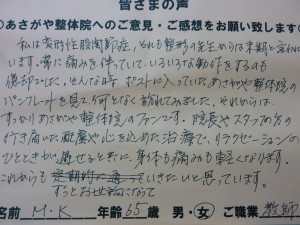 皆さまの声
◎あさがや整体院へのご意見・ご感想をお願い致します◎
私は変形性股関節症、それも整形の先生からは末期と言われて
います。常に痛みを伴っていて、いろいろな動作をするのも
億劫でした。そんな時 ポストに入っていたあさがや整体院の
パンフレットを見て 何となく訪れてみました。それからは、
すっかりあさがや整体院のファンです。院長やスタッフの方の
行き届いた配慮や心を込めた治療で、リラクゼーションの
ひとときが過せると共に、身体も痛みも軽くなります。
これからも 定期的に通って いきたいと思っています。
ずっとお世話になって
名前 M・K 年齢 65歳 男・女 ご職業 教師